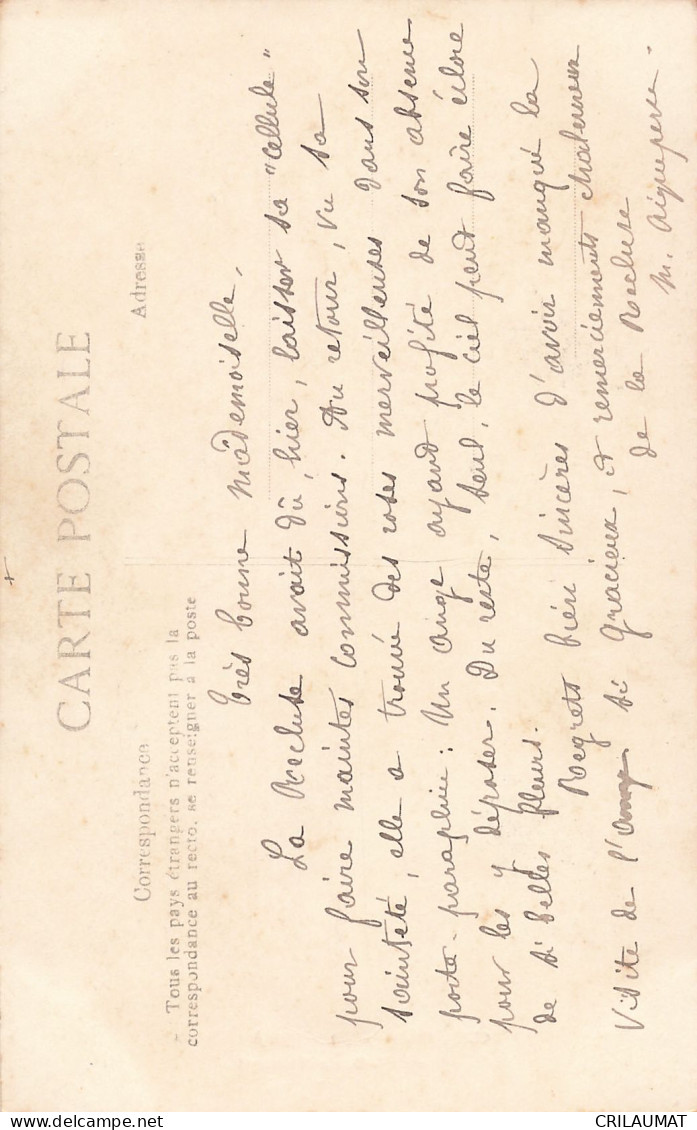 CARTE POSTALE
Correspondance
Adresse
- Tous les pays étrangers n'acceptent pas la
correspondance au recto, se renseigner à la poste
Très bonne Mademoiselle,
La Recluse avait dû, hier, laisser sa "cellule"
pour faire maintes commissions. Au retour, vu sa
sainteté, elle a trouvé des roses merveilleuses dans son
porte-parapluie : Un ange ayant profité de son absence
pour les y déposer. Du reste, seul, le ciel peut faire éclore
de si belles fleurs.
Regrets bien sincères d'avoir manqué la
visite de l'ange si gracieux, et remerciements chaleureux
de la Recluse
M. Aigueperse.
CRILAUMAT